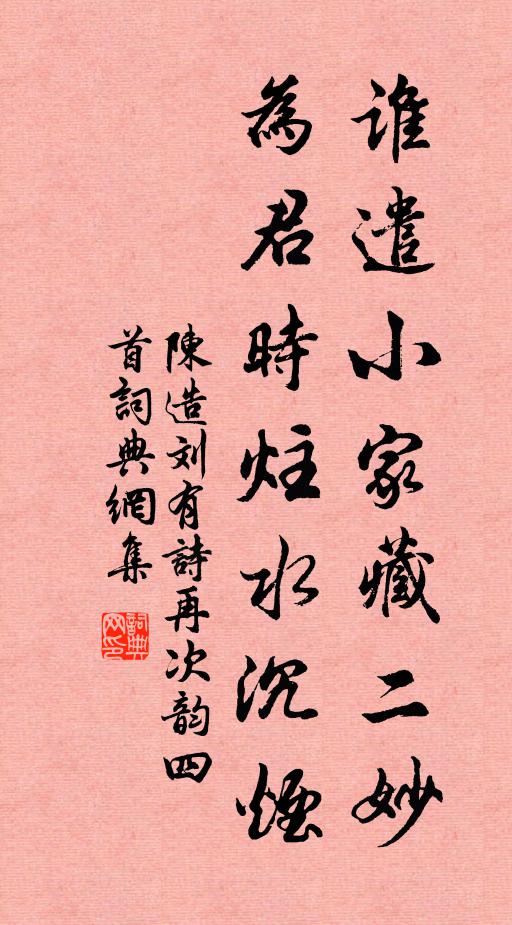 誰遣小家藏二妙
為君時炷水沉煙
陳造刘有詩再次韵四
首詞典網集
詞典網印